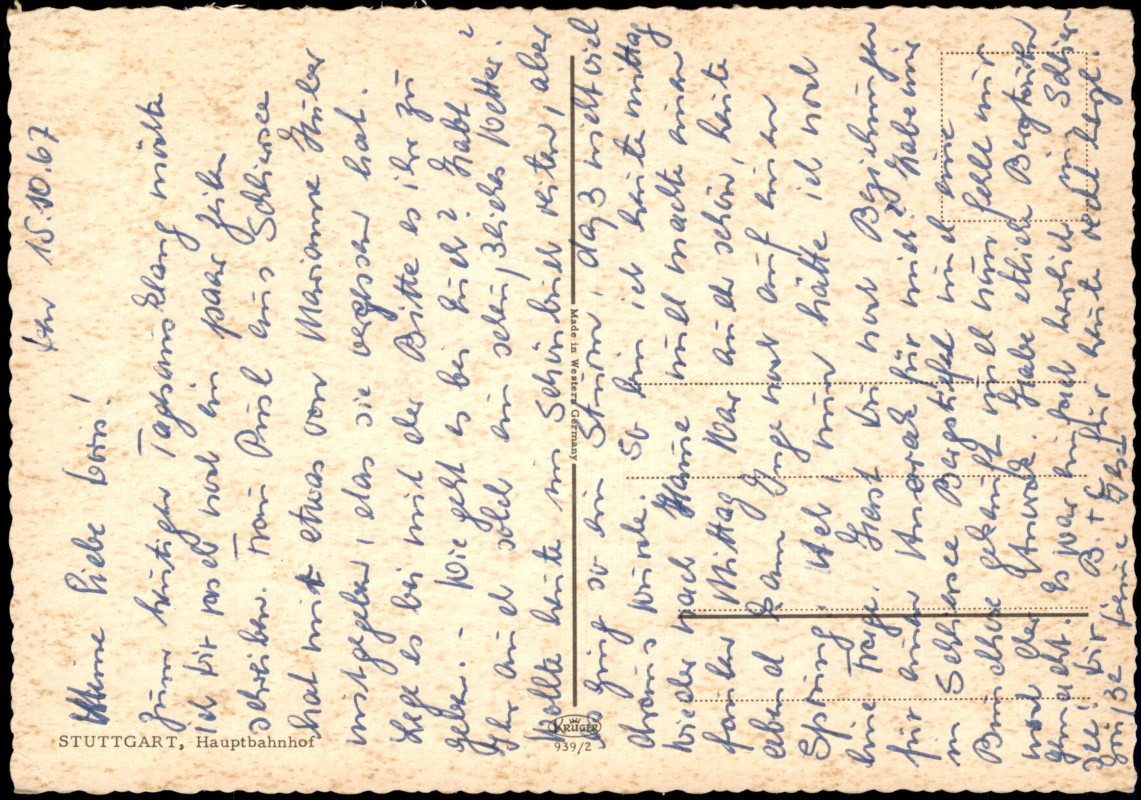 den 15.10.67
Meine liebe Doris!
Zum heutigen Tagesausklang möchte
ich Dir rasch noch ein paar Zeilen
schreiben. Frau aus Schliersee
hat mir etwas von Marianne Huber
mitgegeben, das sie vergessen hat.
Lege es bei mit der Bitte es ihr zu
geben. - Wie geht es bei Euch? Habt
Ihr auch solch ein scheußliches Wetter?
Wollte heute im Schönbuch reiten, aber
es ging so ein Sturm, daß nicht viel
draus wurde. So bin ich heute mittag
wieder nach Hause und machte einen
faulen Mittag. War auch schön, heute
abend kam Inge noch auf einen
Sprung. Ach, nun hätte ich noch
eine Frage. Hast Du noch Beziehungen
für einen Anorak für mich? Habe mir
in Schliersee Bergstiefel und eine
Bundhose gekauft und nun fehlt nur
noch der Anorak. Habe etliche Bergtouren
gemacht. Es war einfach herrlich in Schlier-
see! Dir B. + für heute recht herzl.
Grüße Deine
STUTTGART, Hauptbahnhof
Made in Western Germany
KRÜGER
939/2